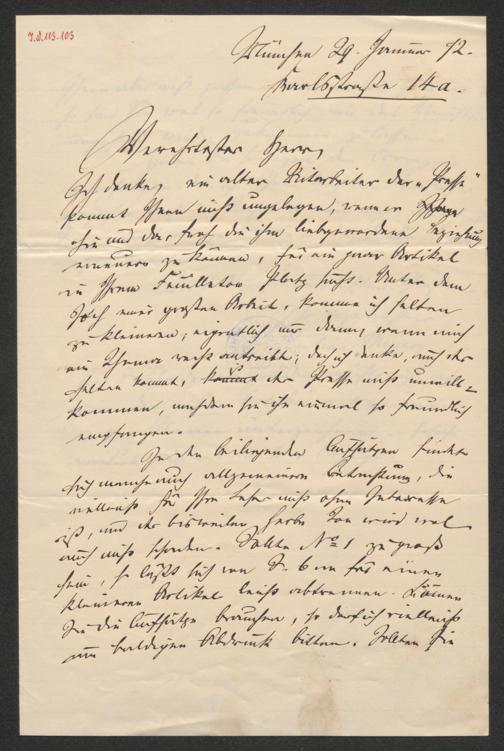 7.Q.113.103
München 29. Januar 72.
Karlsstraße 14a.
Verehrtester Herr,
Ich denke, ein alter Mitarbeiter der „Presse“
kommt Ihnen nicht ungelegen, wenn er
hin und da, froh die ihm liebgewordene Beziehung
erneuern zu können, für ein paar Artikel
in Ihrem Feuilleton Platz sucht. Unter dem
Joch einer großen Arbeit, komme ich selten
zu kleineren; eigentlich nur dann, wenn mich
ein Thema recht antreibt; doch ich denke, auch der
selten kommt, der Presse nicht unwill-
kommen, nachdem sie ihn einmal so freundlich
empfangen.
In den beiliegenden Aufsätzen findet
sich manche auch allgemeinere Betrachtung, die
vielleicht für Ihre Leser nicht ohne Interesse
ist, und der bisweilen herbe Ton wird wol
auch nicht schaden. Sollte No 1 zu groß
sein, so läßt sich von S. 6 an für einen
kleineren Artikel leicht abtrennen. Können
Sie die Aufsätze brauchen, so darf ich vielleicht
um baldigen Abdruck bitten. Sollten Sie